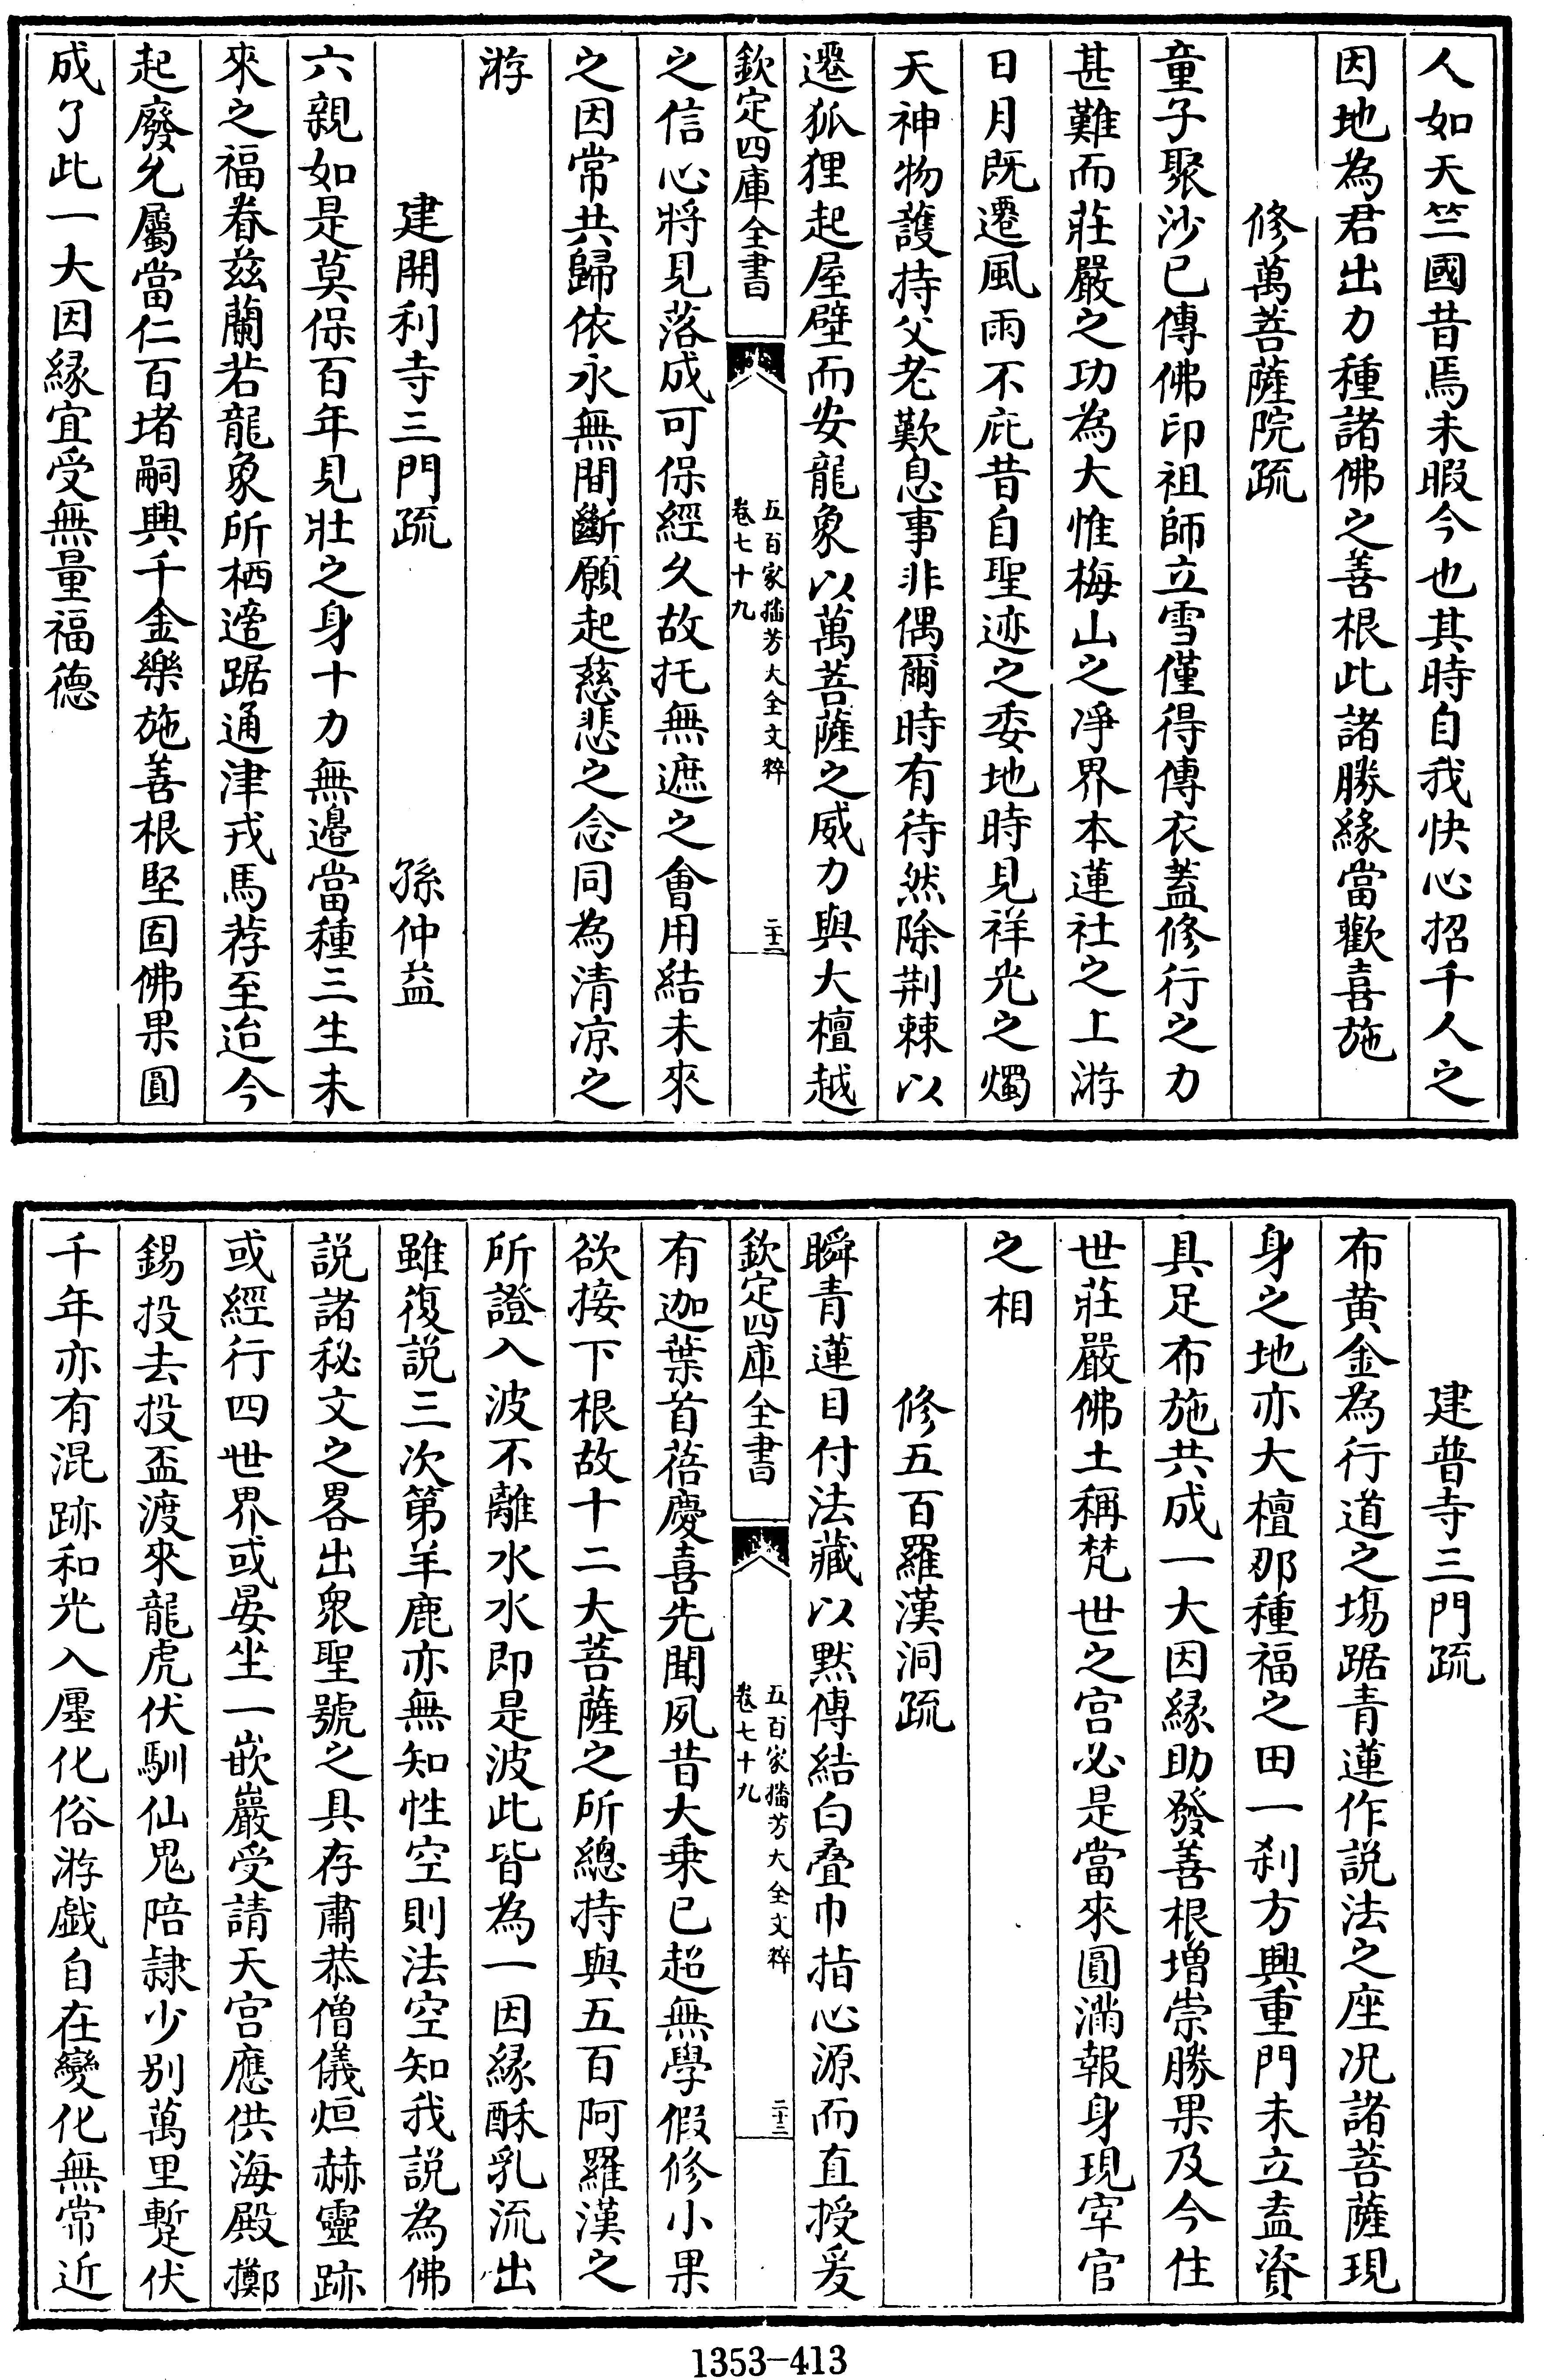 人如天竺國昔焉未暇今也其時自我快心招千人之
因地為君出力種諸佛之善根此諸勝緣當歡喜施
修萬菩薩院疏
童子聚沙已傳佛印祖師立雪僅得傳衣蓋修行之力
甚難而莊嚴之功為大惟梅山之淨界本蓮社之上游
日月既遷風雨不庇昔自聖迹之委地時見祥光之燭
天神物護持父老歎息事非偶爾時有待然除荆棘以
遷狐狸起屋壁而安龍象以萬菩薩之威力與大檀越
欽定四庫全書
五百家播芳大全文粹
卷七十九
二十二
之信心將見落成可保經久故托無遮之會用結未來
之因常共歸依永無間斷願起慈悲之念同為清凉之
游
建開利寺三門疏 孫仲益
六親如是莫保百年見壯之身十力無邉當種三生未
來之福眷兹蘭若龍象所栖遆踞通津戎馬荐至迨今
起廢允屬當仁百堵嗣興千金樂施善根堅固佛果圓
成了此一大因緣宜受無量福德
建普寺三門疏
布黄金為行道之塲踞青蓮作説法之座况諸菩薩現
身之地亦大檀那種福之田一刹方興重門未立盍資
具足布施共成一大因緣助發善根增崇勝果及今住
世莊嚴佛土稱梵世之宫必是當來圓滿報身現宰官
之相
修五百羅漢洞疏
瞬青蓮目付法藏以黙傳結白疊巾指心源而直授爰
欽定四庫全書
五百家播芳大全文粹
卷七十九
二十三
有迦葉首蓓慶喜先聞夙昔大乗已超無學假修小果
欲接下根故十二大菩薩之所總持與五百阿羅漢之
所證入波不離水水即是波此皆為一因緣酥乳流出
雖復説三次第羊鹿亦無知性空則法空知我説為佛
説諸秘文之畧出衆聖號之具存肅恭僧儀烜赫靈跡
或經行四世界或晏坐一嵌巖受請天宫應供海殿擲
錫投去投盃渡來龍虎伏馴仙鬼陪隷少别萬里蹔伏
千年亦有混跡和光入廛化俗游戯自在變化無常近
1353-413